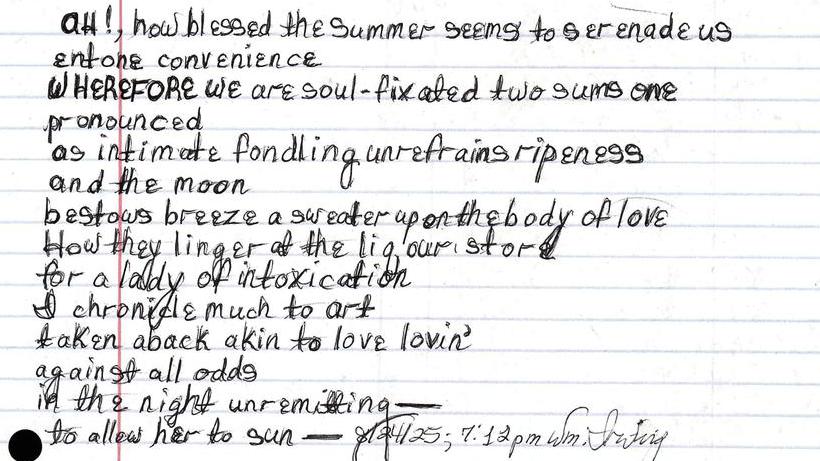 aH!, how blessed the summer seems to serenade us
entone convenience
WHEREFORE WE are soul-fixated two sums one
pronounced
as intimate fondling unrefrains ripeness
and the moon
bestows breeze a sweater upon the body of love
How they linger at the liqour store
for a lady of intoxication
I chronicle much to art
taken aback akin to love lovin'
against all odds
in the night unremitting—
to allow her to sun — 8/24/25; 7:12pm Wm.